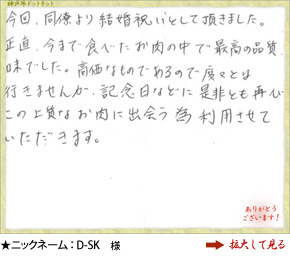 神戸牛ドットネット
今回、同僚より結婚祝いとして頂きました。
正直、今まで食べたお肉の中で最高の品質
味でした。高価なものであるので度々とは
行きませんが、記念日などに是非とも再び
この上質なお肉に出会う為利用させて
いただきます。
ありがとう
ございます！
★ニックネーム：D-SK 様
拡大して見る